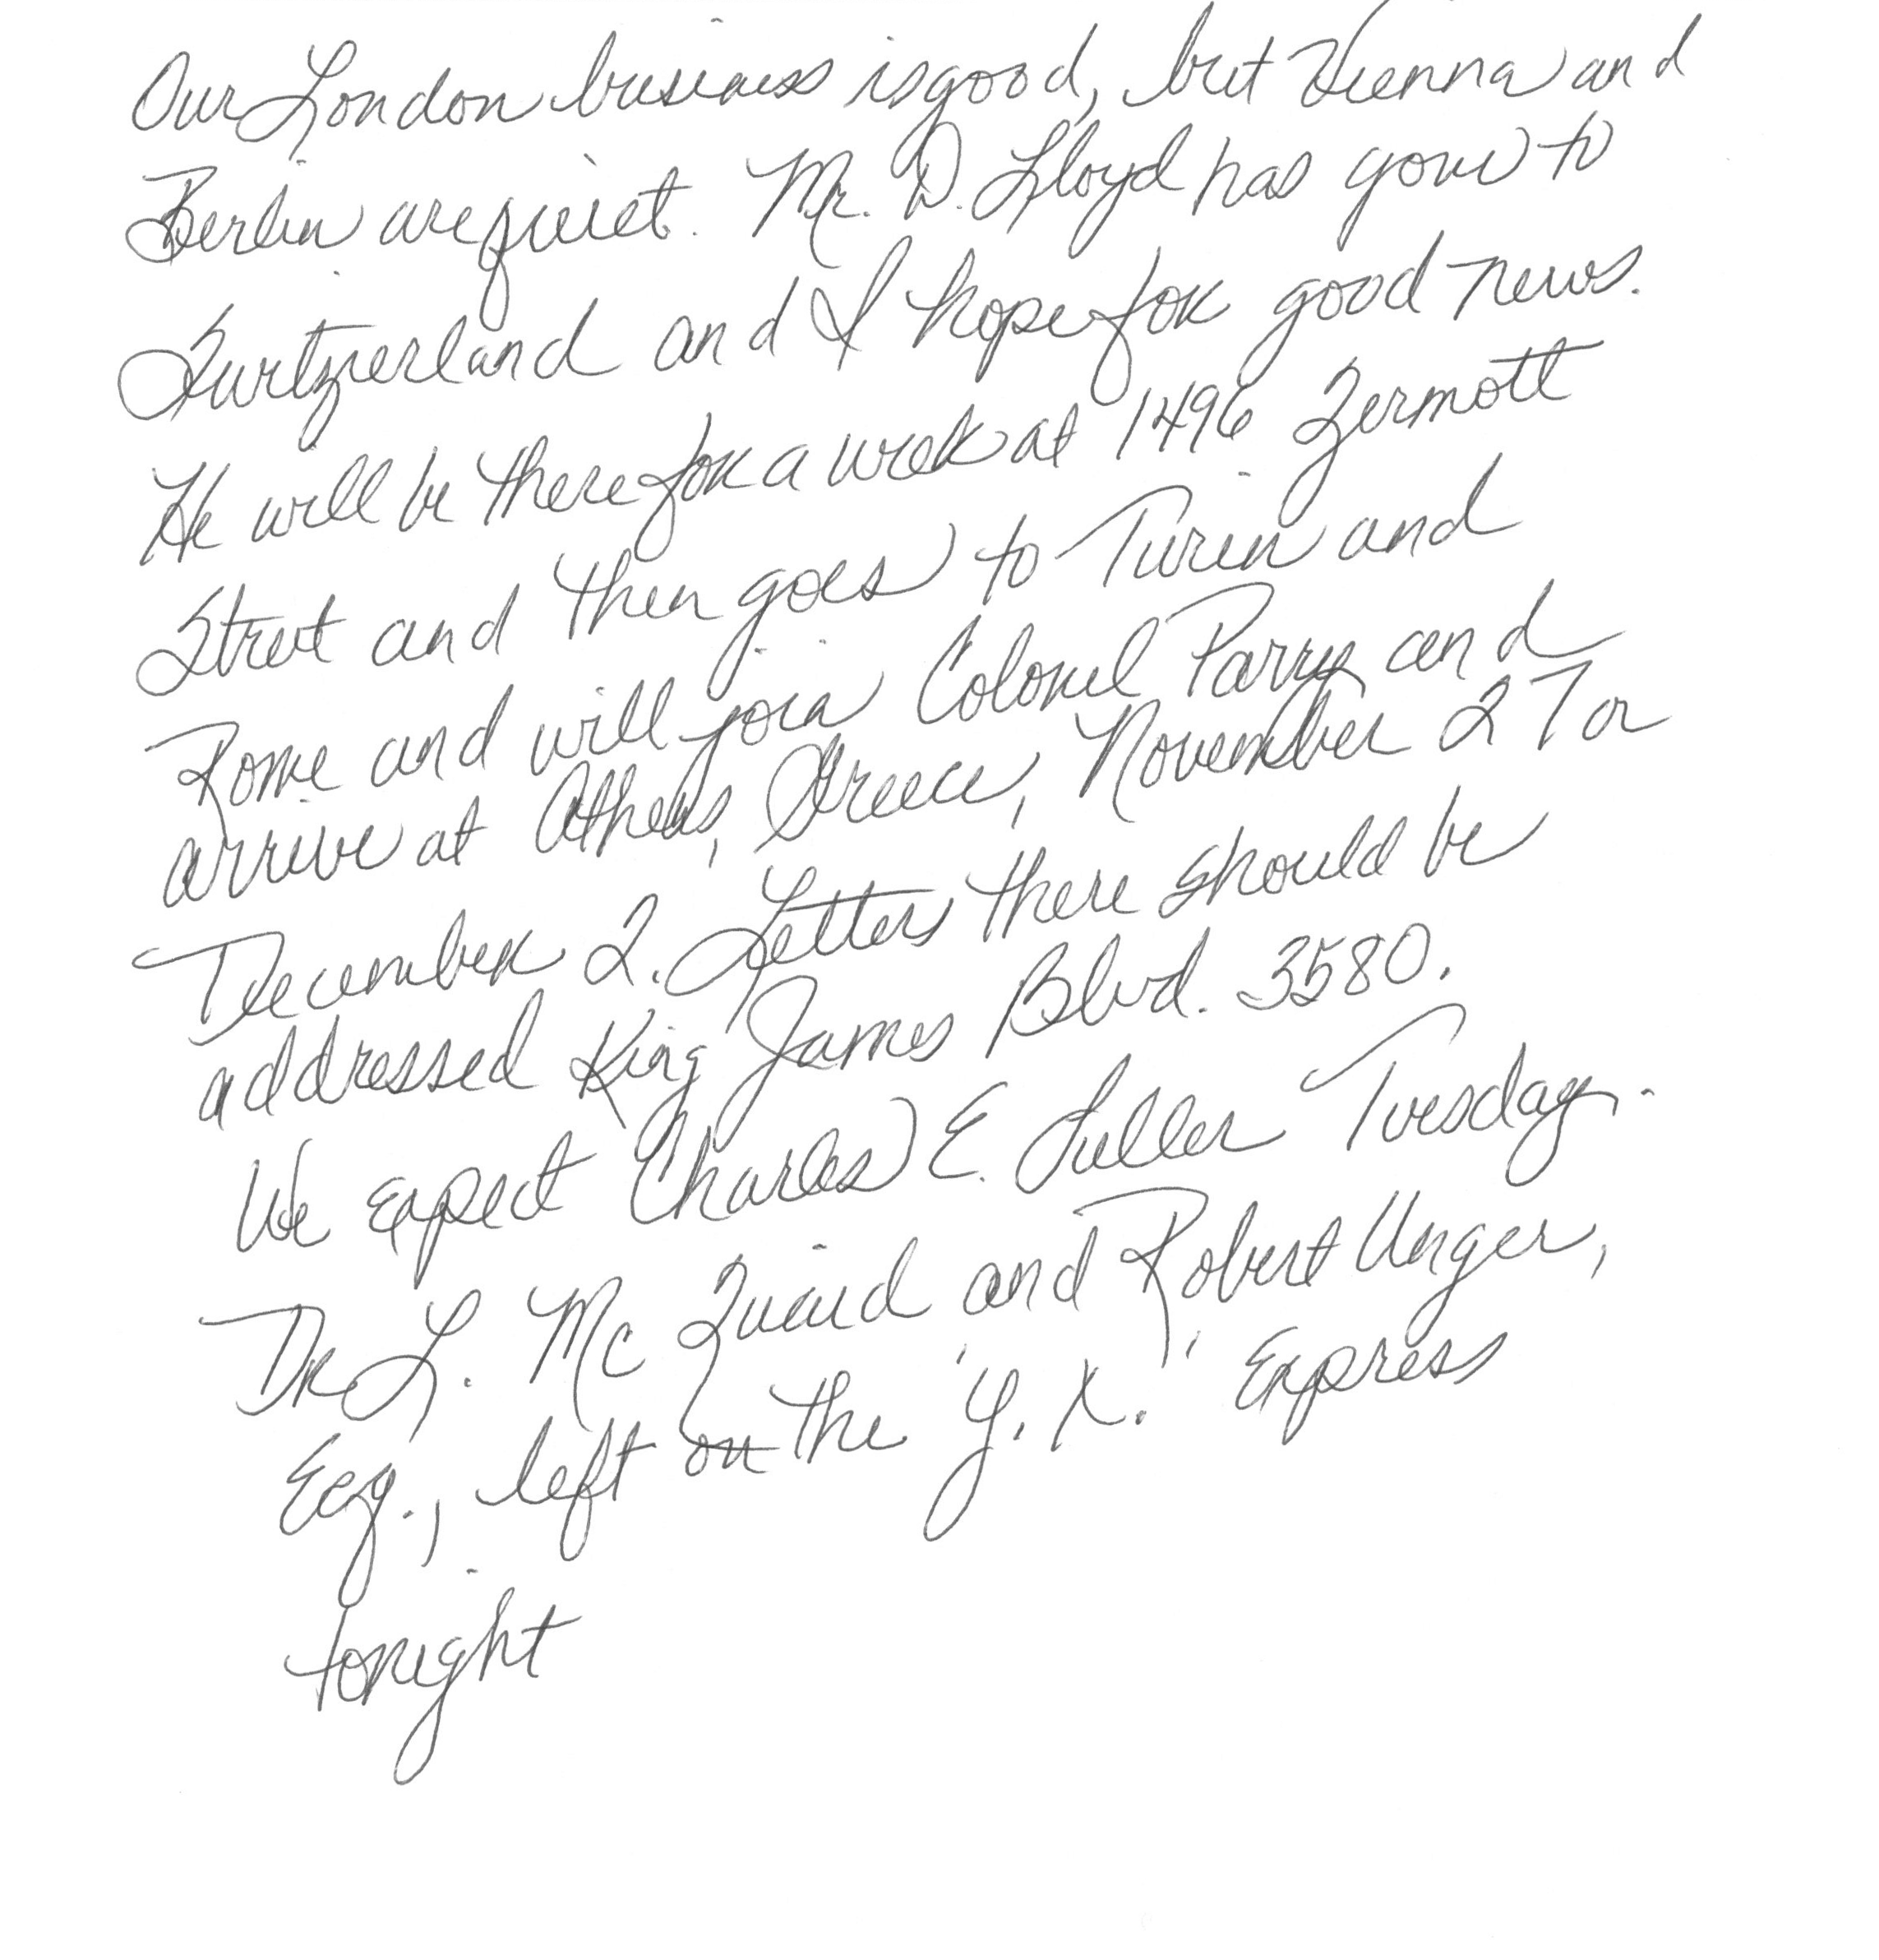 Our London business is good, but Vienna and
Berlin are quiet. Mr. D. Lloyd has gone to
Switzerland and I hope for good news.
He will be there for a week at 1496 Zermott
Street and then goes to Turin and
Rome and will join Colonel Parry and
arrive at Athens, Greece, November 27 or
December 2. Letters there should be
addressed King James Blvd. 3580.
We expect Charles E. Fuller Tuesday.
Dr L. Mc Quaid and Robert Unger,
Esq., left on the 'Y. X.' Express
tonight